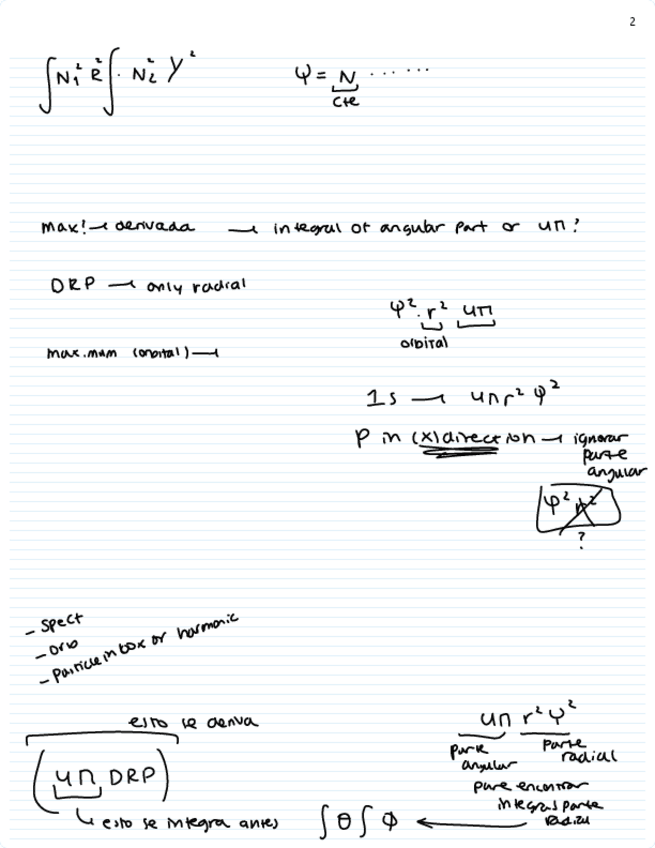 2
∫N₁² R² ∫· N₂² Y²
Ψ = N ······
cte
max! → derivada → integral of angular part or 4π?
DRP → only radial
Ψ²·r² 4π
orbital
max.mum (orbital) →
1s → 4πr² Ψ²
P in (x) direction → ignorar
parte
angular
Ψ² r²
?
- spect
- orb
- Particle in box or harmonic
esto se deriva
(4π DRP)
esto se integra antes
4π r² Ψ²
parte angular
parte radial
para encontrar
integras parte
∫θ ∫Φ ←